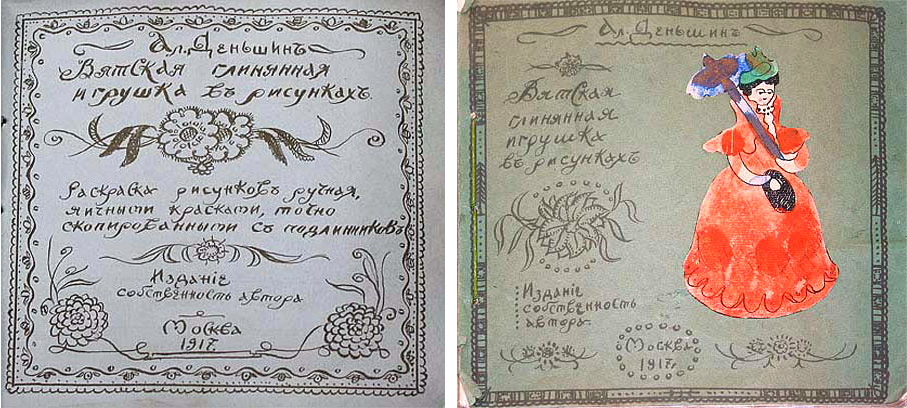 Ал. Деньшинъ
Вятская глинянная
игрушка въ рисункахъ.
Раскраска рисунковъ ручная,
яичными красками, точно
скопированными съ подлинниковъ
Изданіе
собственность автора
Москва
1917.
Ал. Деньшинъ
Вятская
глинянная
игрушка
въ рисункахъ
Изданіе
собственность
автора.
Москва
1917.